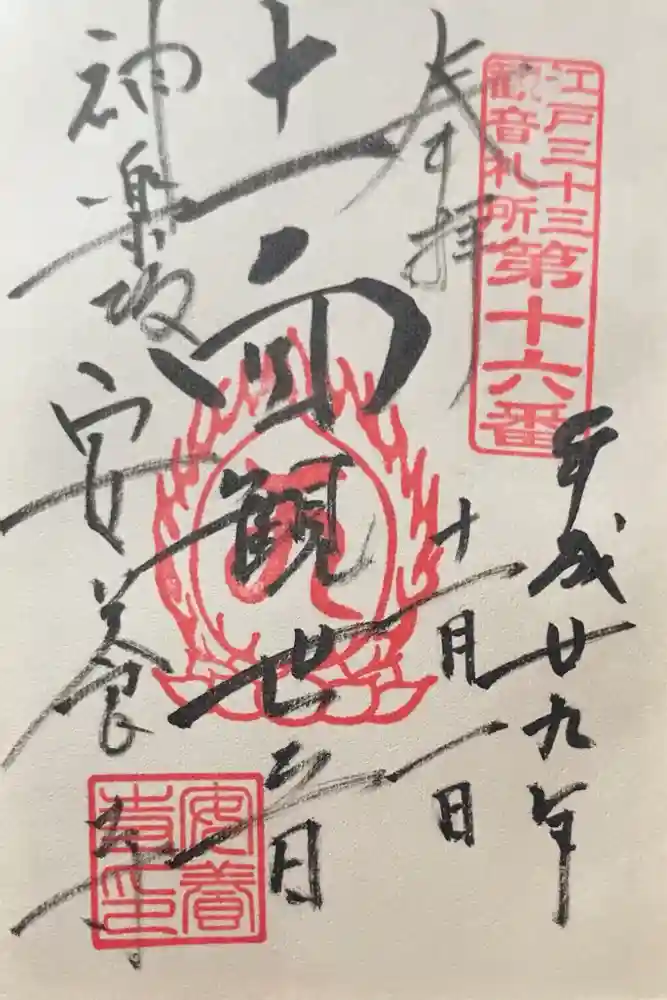 江戸三十三
観音札所
第十六番
奉拝
平成廿九年
十一月一日
十一面観世音
神楽坂 安養寺
安養寺印